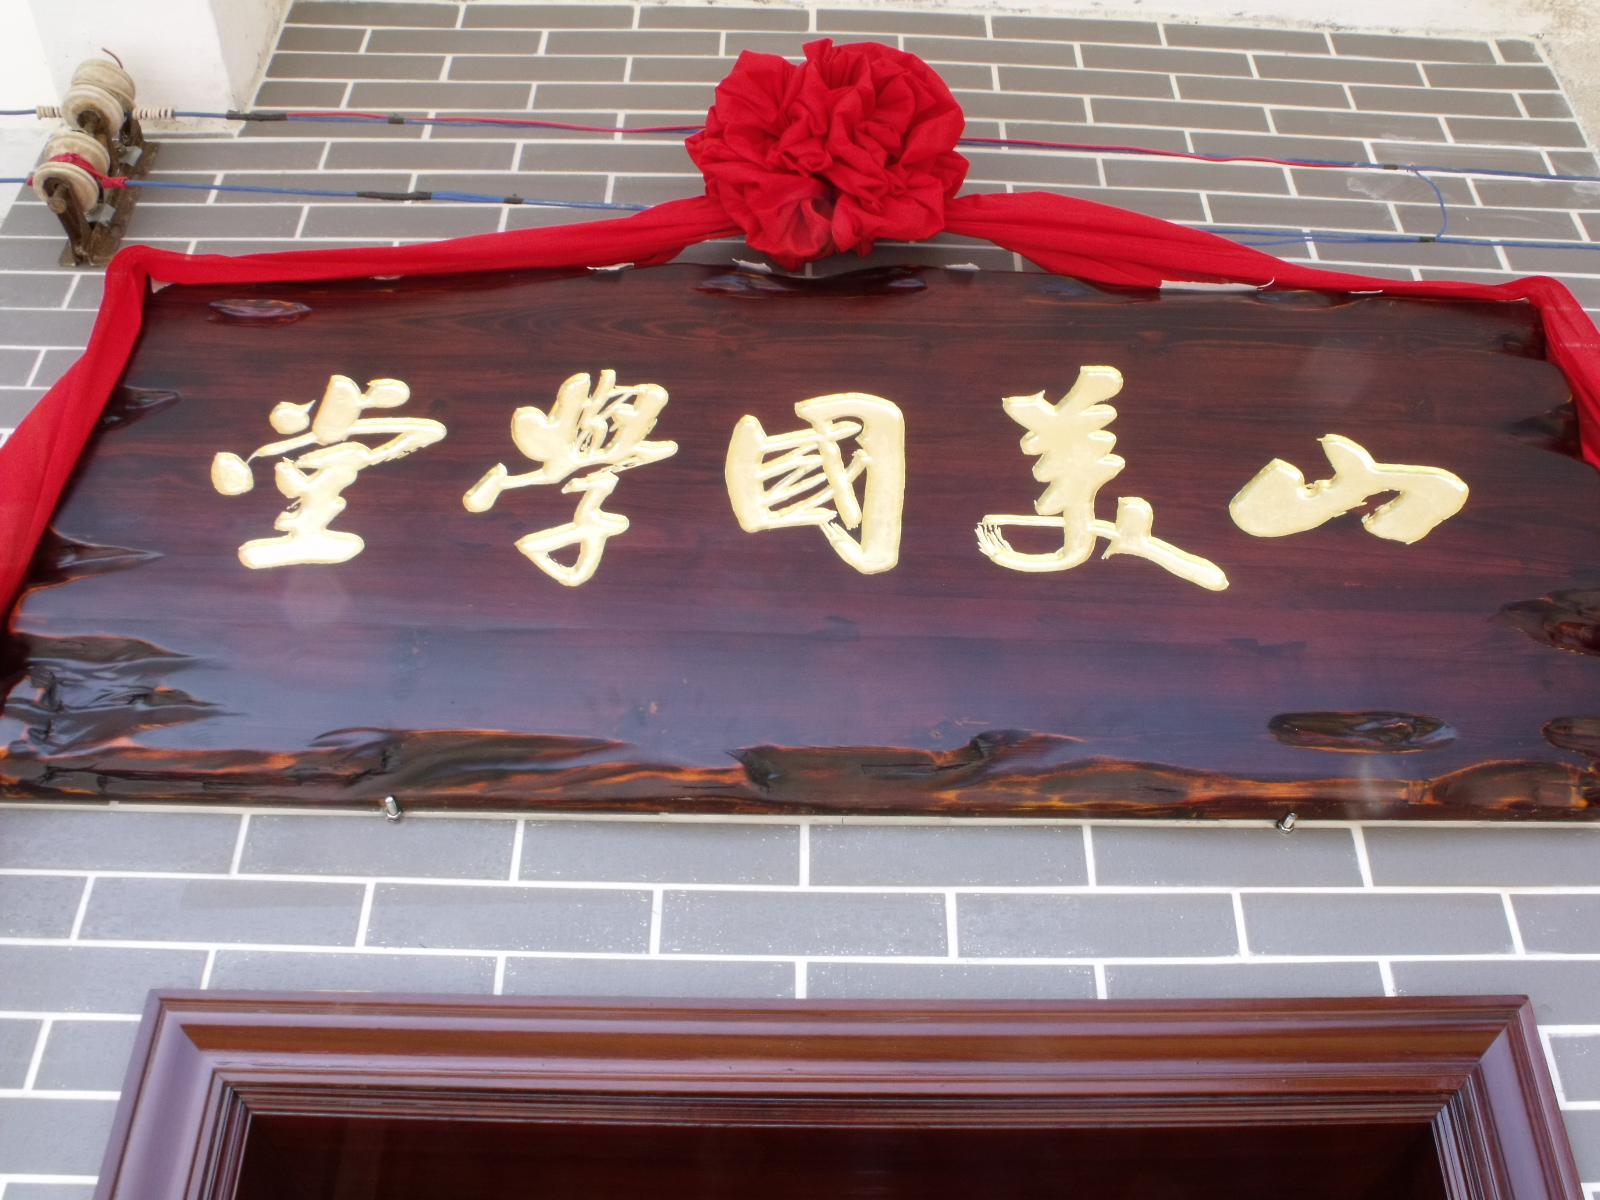 山美國學堂